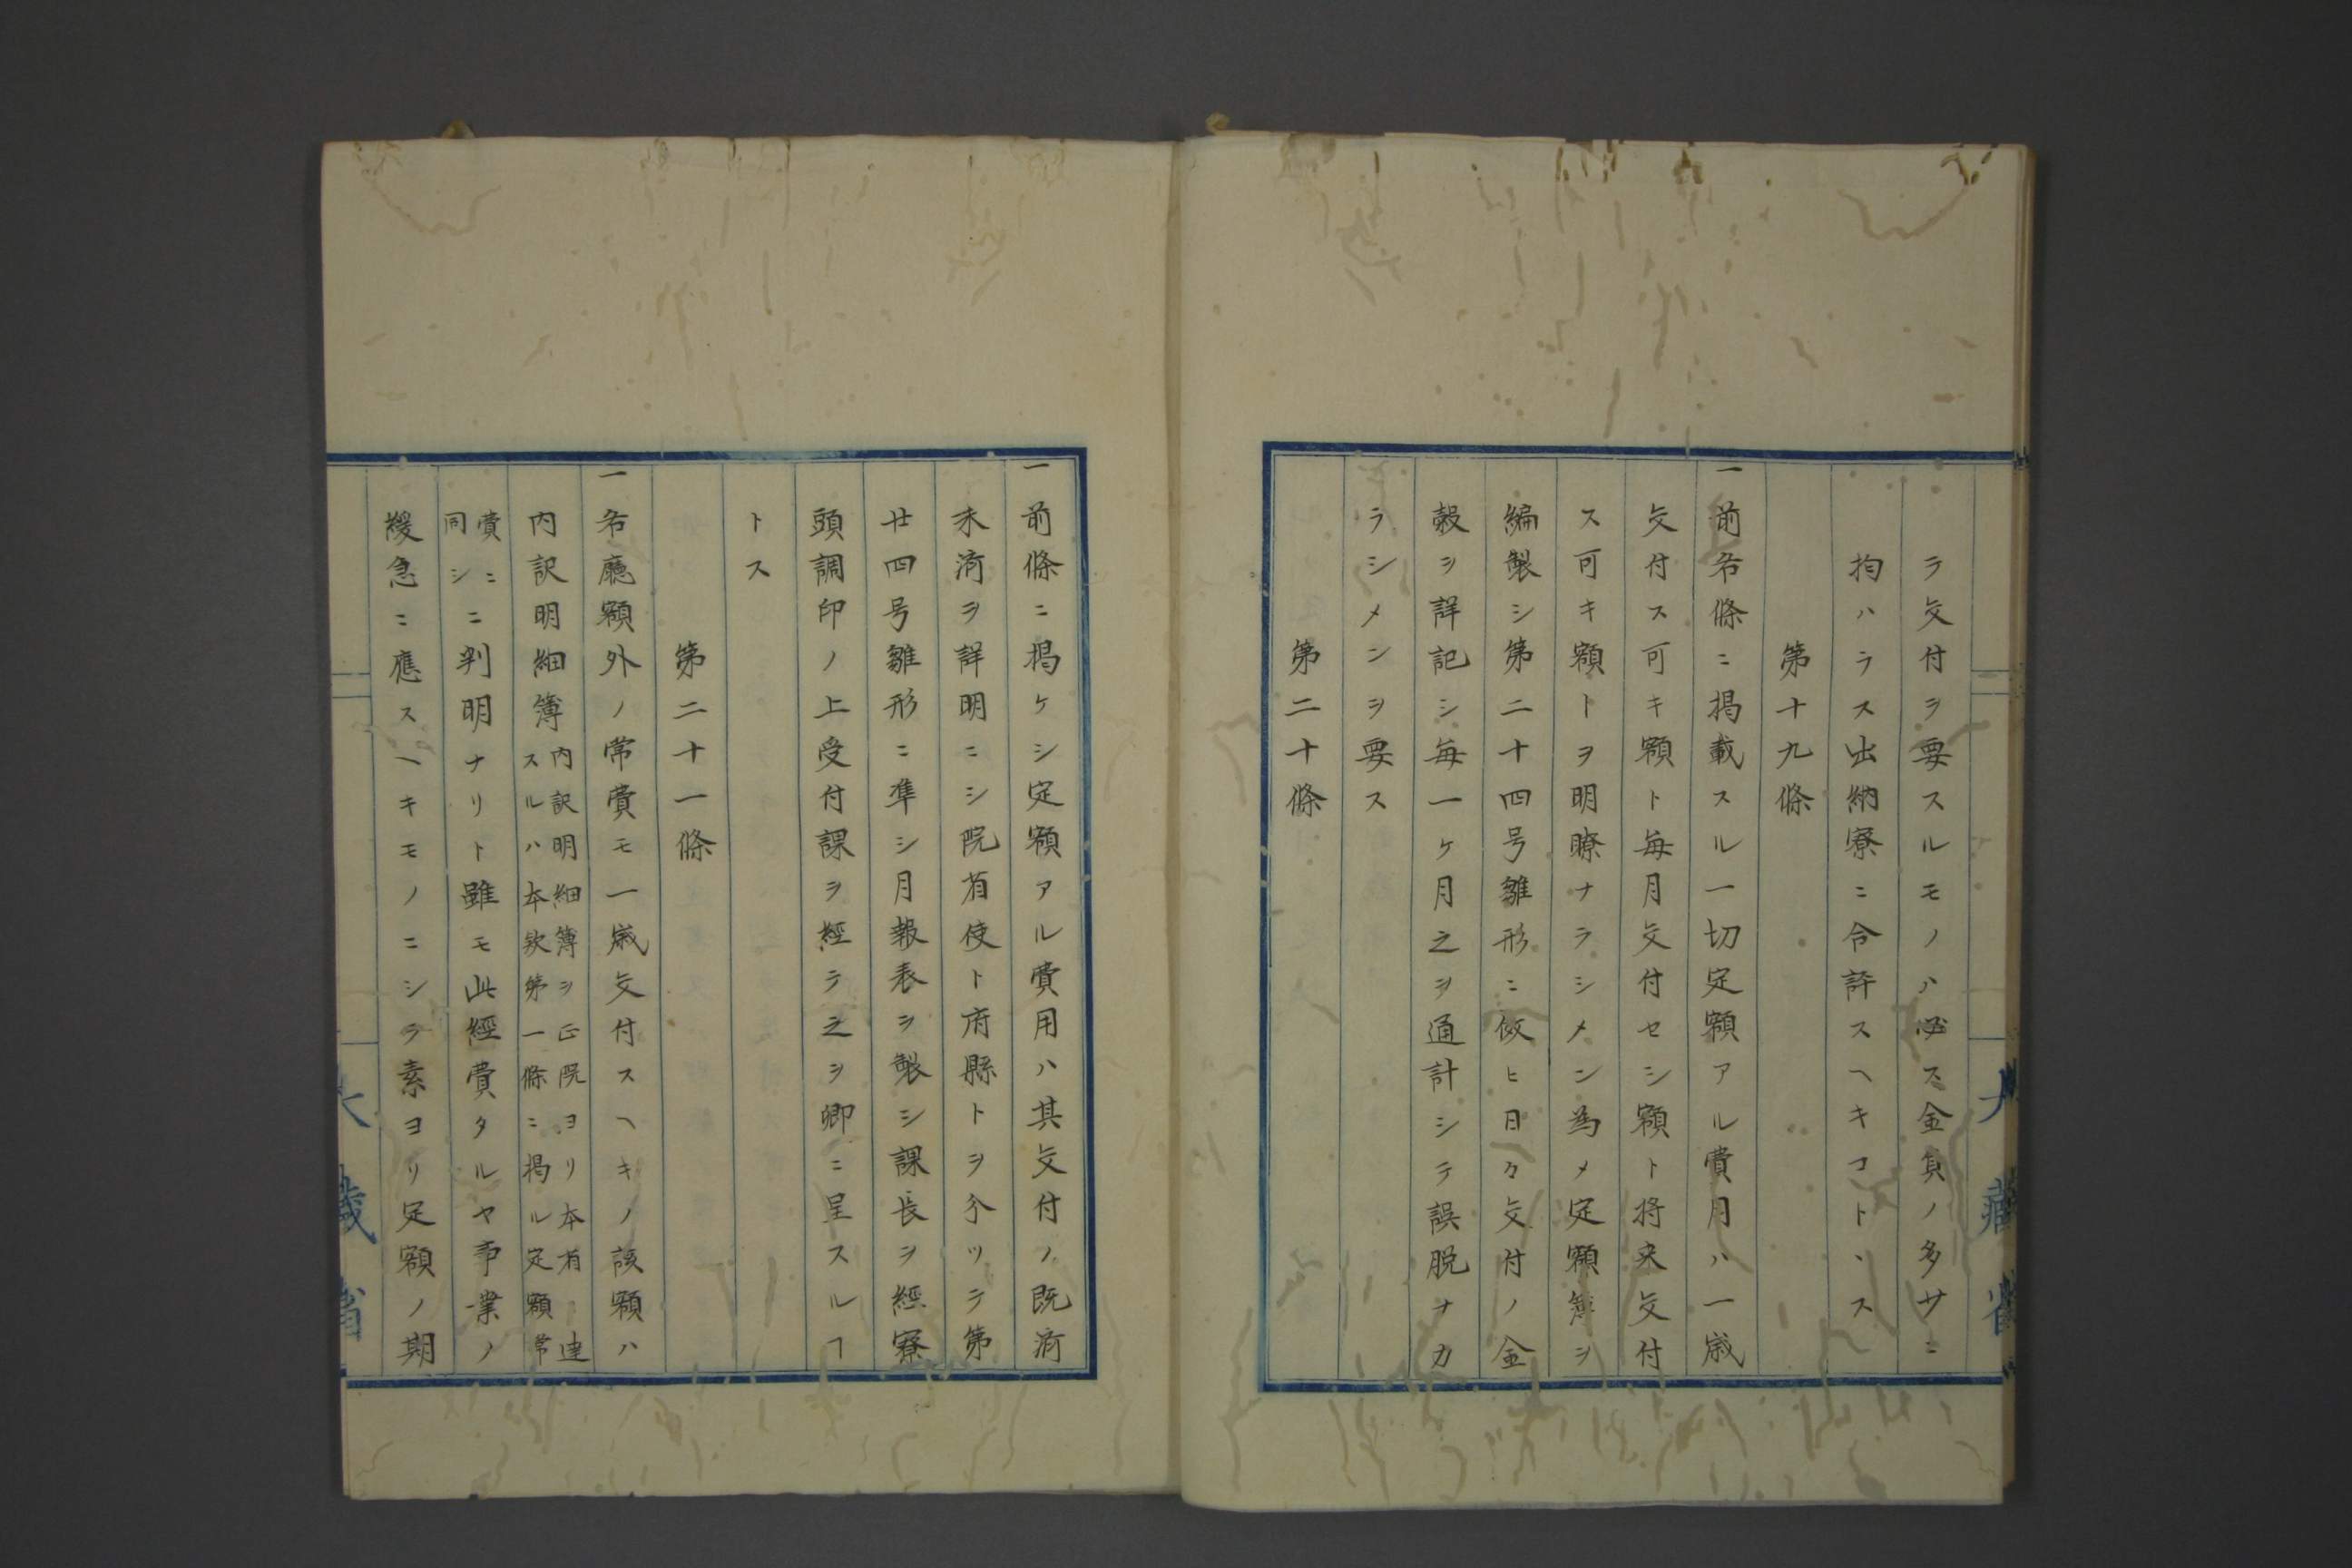 ラ交付ヲ要スルモノハ必ス金員ノ多サニ
拘ハラス出納寮ニ令許スヘキコトヽス
第十九條
一前各條ニ掲載スル一切定額アル費用ハ一歳
交付ス可キ額ト毎月交付セシ額ト将来交付
ス可キ額トヲ明瞭ナラシメン為メ定額簿ヲ
編製シ第二十四号雛形ニ倣ヒ日々交付ノ金
穀ヲ詳記シ毎一ケ月之ヲ通計シテ誤脱ナカ
ラシメンヲ要ス
第二十條
一前條ニ掲ケシ定額アル費用ハ其交付ノ既済
未済ヲ詳明ニシ院省使ト府縣トヲ分ツテ第
廿四号雛形ニ準シ月報表ヲ製シ課長ヲ經寮
頭調印ノ上受付課ヲ經テ之ヲ卿ニ呈スルヿ
トス
第二十一條
一各廳額外ノ常費モ一歳交付スヘキノ該額ハ
内訳明細簿内訳明細簿ヲ正院ヨリ本省ニ達
スルハ本欵第一條ニ掲ル定額常
費ニ
同シニ判明ナリト雖モ此經費タルヤ事業ノ
緩急ニ應スヘキモノニシテ素ヨリ定額ノ期
大藏省
大藏省